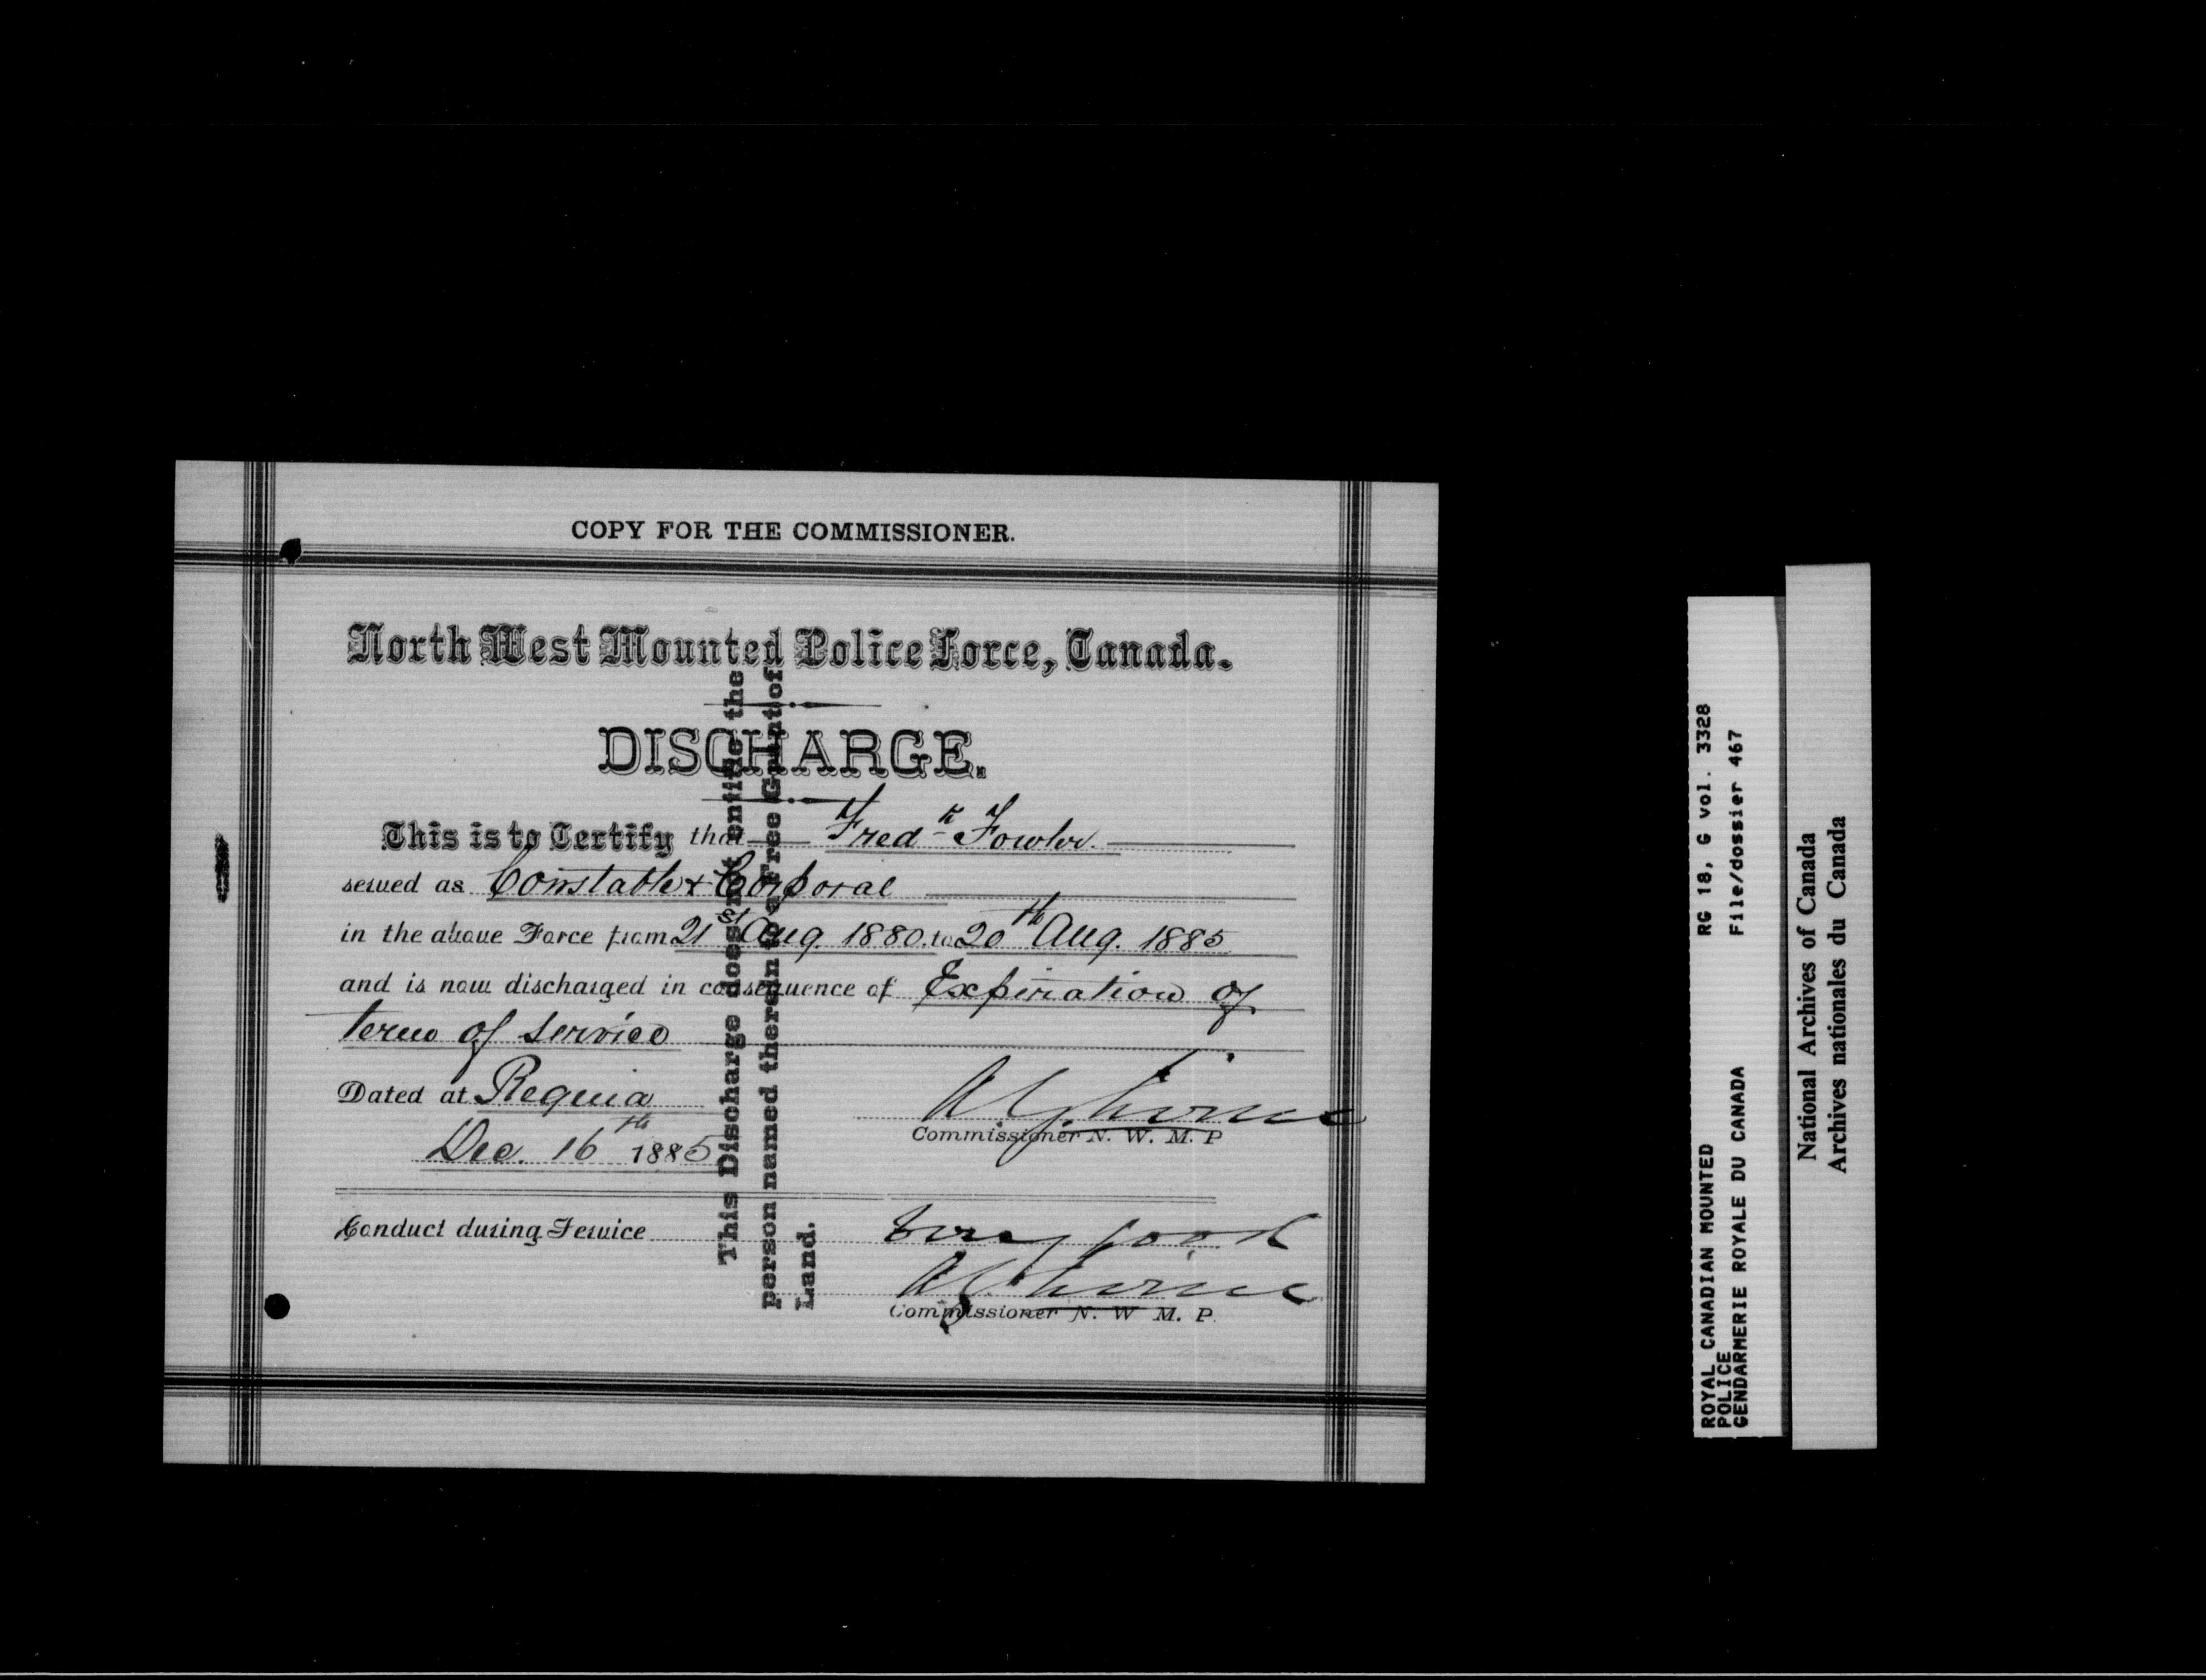 COPY FOR THE COMMISSIONER.
North West Mounted Police Force, Canada.
DISCHARGE.
This is to Certify that Fredk Fowler.
served as Constable & Corporal
in the above Force from 21st Aug. 1880. to 20th Aug. 1885
and is now discharged in consequence of Expiration of
term of service
Dated at Regina
Dec. 16th 1885
Commissioner N. W. M. P
Conduct during Service Very good
Commissioner N. W M. P.
This Discharge does not entitle the
person named therein to a Free Grant of
Land.
RG 18, G vol. 3328
File/dossier 467
ROYAL CANADIAN MOUNTED
POLICE
GENDARMERIE ROYALE DU CANADA
National Archives of Canada
Archives nationales du Canada